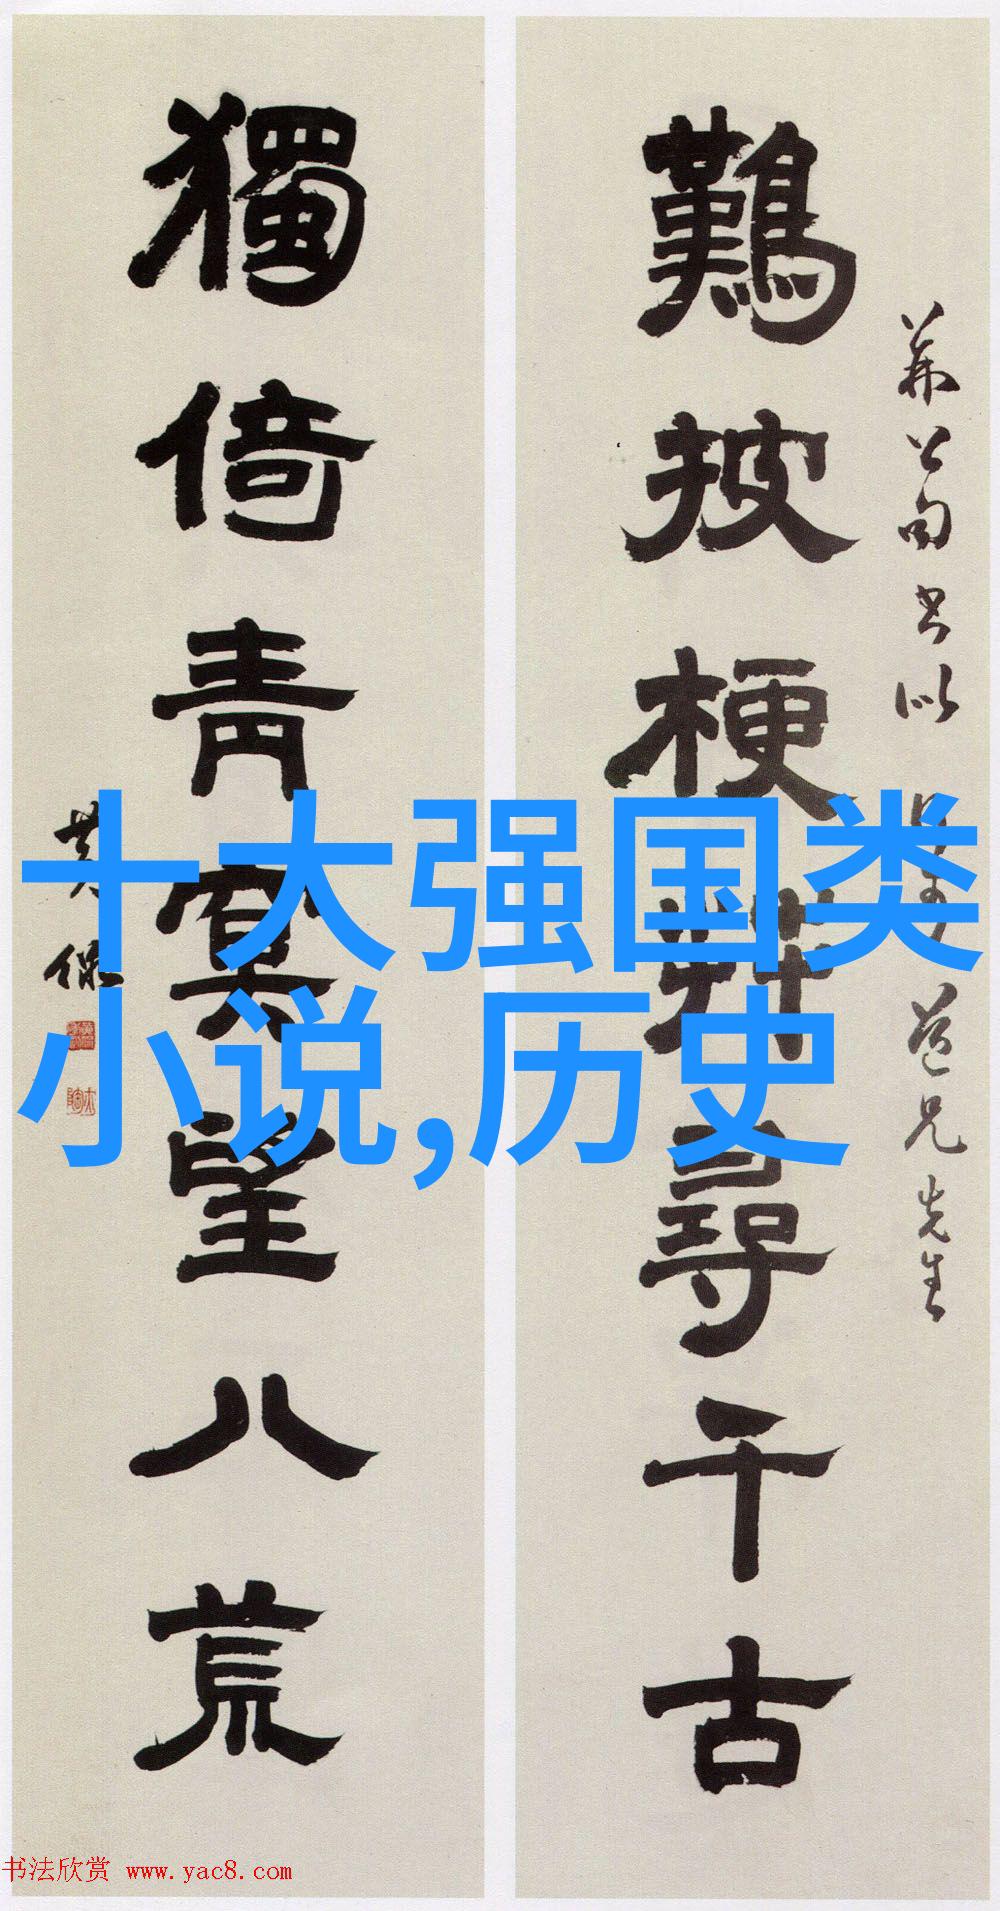 難披梗尋千古
道兄先生
獨倚青冥望八荒
十大强国类
小说,历史
书法欣赏 www.yac8.com